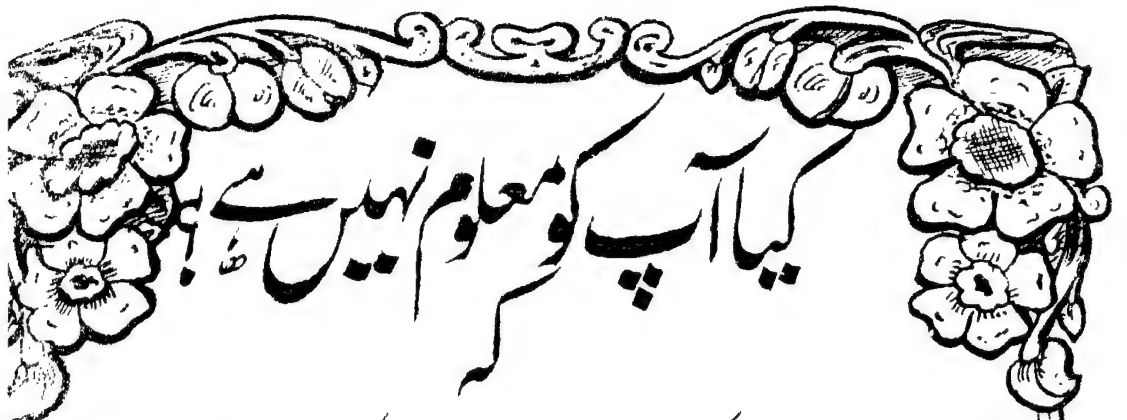 کیا آپ کو معلوم نہیں ہے ؟
کہ